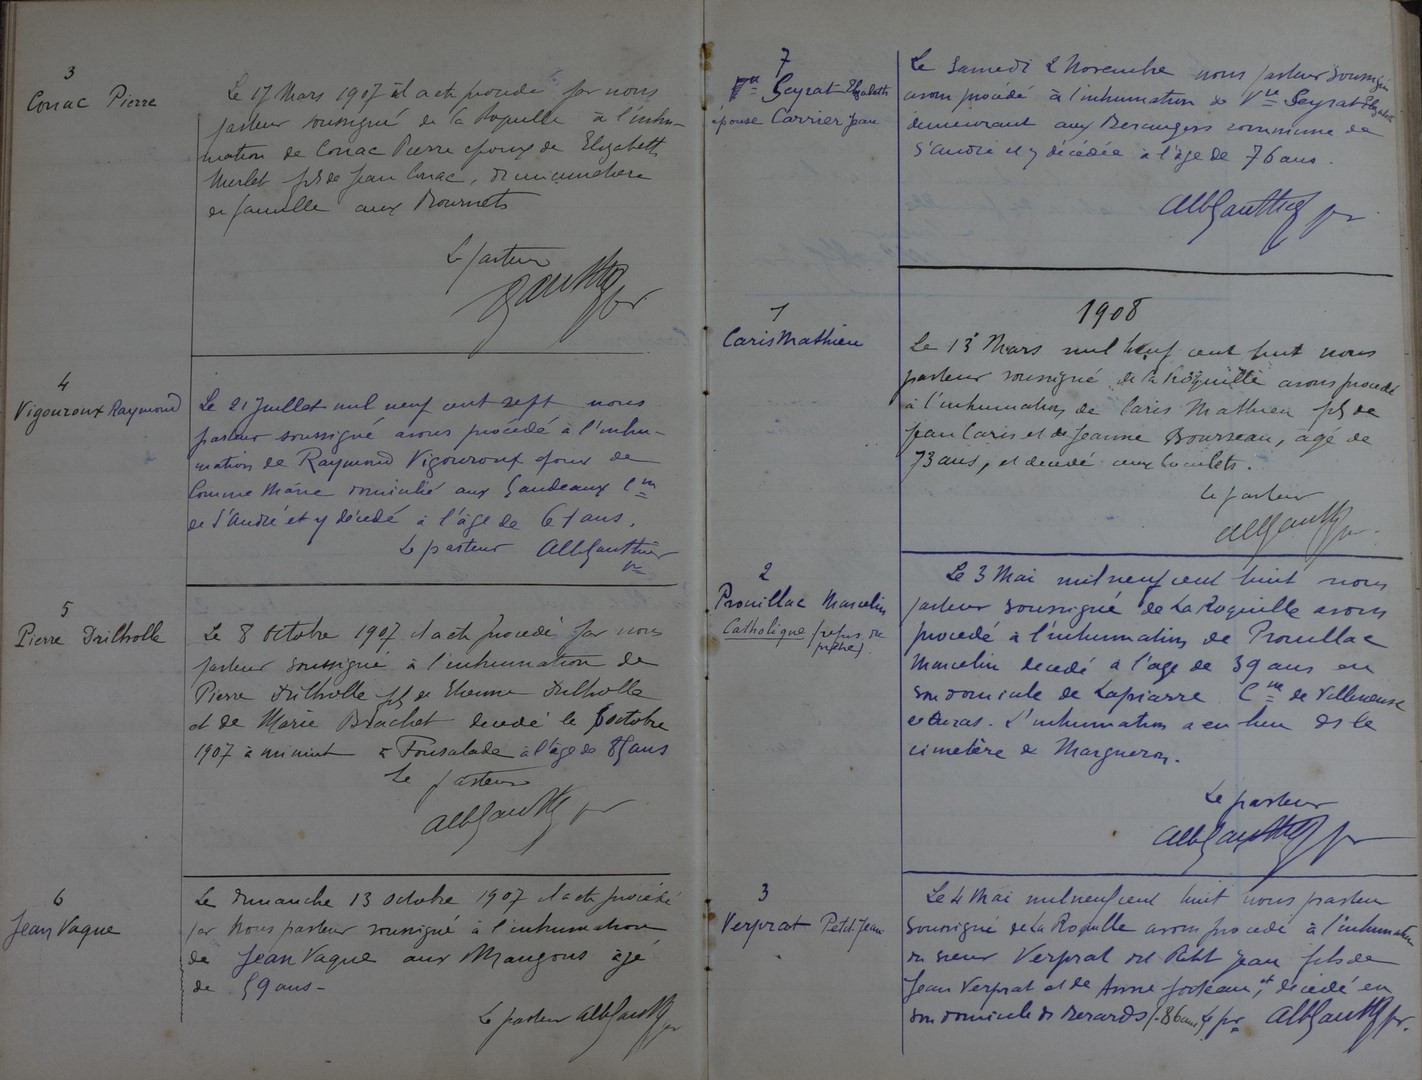 3
Conac Pierre
Le 17 Mars 1907 il a été procédé par nous
pasteur soussigné de la Roquille à l'inhu-
mation de Conac Pierre époux de Elizabeth
Merlet fils de Jean Conac, cimetière
de famille aux Bournets
Le pasteur
4
Vigouroux Raymond
Le 21 Juillet mil neuf cent sept nous
pasteur soussigné avons procédé à l'inhu-
mation de Raymond Vigouroux époux de
Marie domicilié aux Gandeaux Cne
de St André et y décédé à l'âge de 61 ans.
Le pasteur Alb Gauthier
pr
5
Pierre Drilholle
Le 8 Octobre 1907 il a été procédé par nous
pasteur soussigné à l'inhumation de
Pierre Drilholle fils de Etienne Drilholle
et de Marie Brachet decedé le 6 octobre
1907 à minuit à Fonsalade à l'age de 85 ans
Le pasteur
Alb Gauthier pr
6
Jean Vaque
Le Dimanche 13 Octobre 1907 il a été procédé
par Nous pasteur soussigné à l'inhumation
de Jean Vaque aux Maugons âgé
de 59 ans-
Le pasteur Alb Gauthier pr
7
Vve Seyrat Elizabeth
épouse Carrier Jean
Le Samedi 2 Novembre nous pasteur soussigné
avons procédé à l'inhumation de Vve Seyrat Elizabeth
demeurant aux Berangers commune de
St André et y décédée à l'âge de 76 ans.
Alb Gauthier pr
1908
1
Caris Mathieu
Le 13 Mars mil neuf cent huit nous
pasteur soussigné de la Roquille avons procédé
à l'inhumation de Caris Mathieu fils de
Jean Caris et de Jeanne Bourseau, âgé de
73 ans, et décedé aux
Le pasteur
Alb Gauthier pr.
2
Prouillac Marcelin
Catholique (refus du
prêtre).
Le 3 Mai mil neuf cent huit nous
pasteur soussigné de La Roquille avons
procédé à l'inhumation de Prouillac
Marcelin decedé à l'age de 39 ans en
son domicile de Lapiarre Cne de Villeneuve
de Duras. L'inhumation a eu lieu ds le
cimetère de Margueron.
Le pasteur
Alb Gauthier pr
3
Verprat Petit Jean
Le 4 Mai mil neuf cent huit nous pasteur
soussigné de La Roquille avons procédé à l'inhumation
du sieur Verprat dit Petit Jean fils de
Jean Verprat et de Anne, et décédé en
son domicile ds Berards (86 ans) Le pr Alb Gauthier pr.